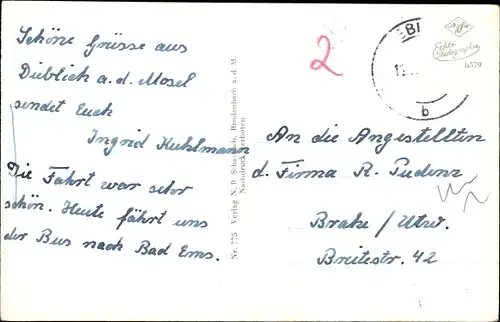 Schöne Grüsse aus
Dieblich a. d. Mosel
sendet Euch
Ingrid Kuhlmann
Die Fahrt war sehr
schön. Heute fährt uns
der Bus nach Bad Ems.
Nr. 775 Verlag N. B. Brodenbach a. d. M.
Nachdruck verboten
2
BI
b
Echte
Photographie
An die Angestellten
d. Firma R. Pudenz
Brake / Utw.
Breitestr. 42